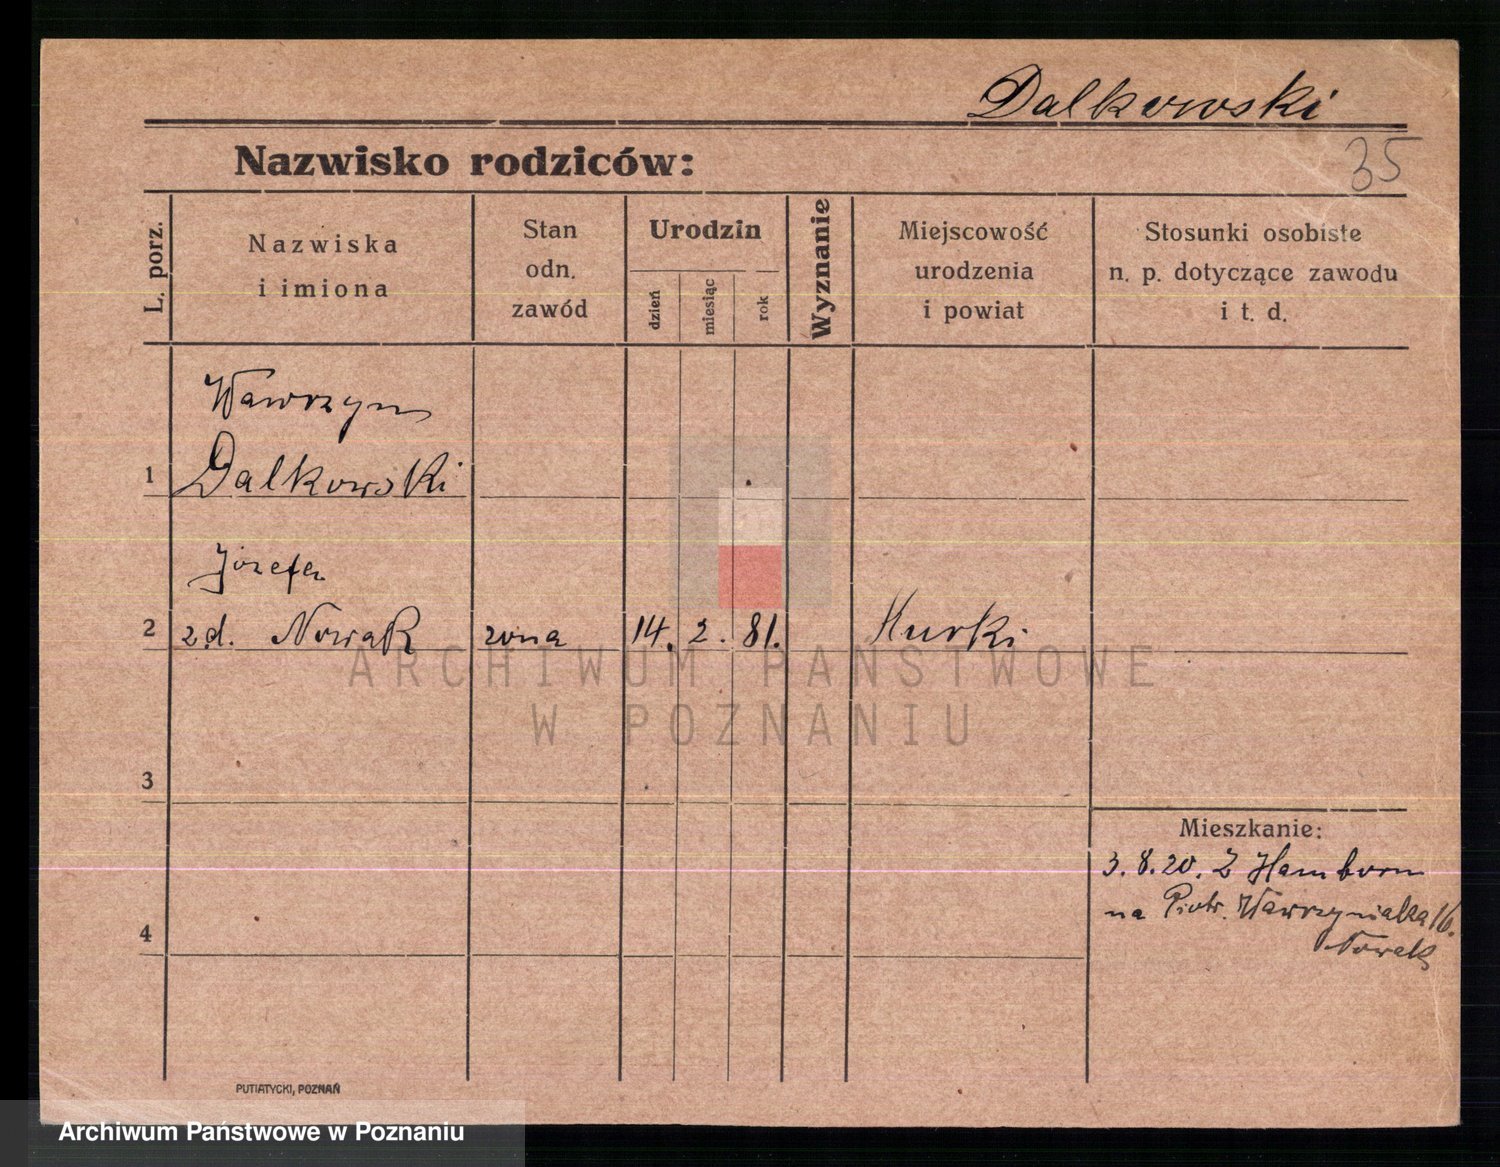 Dalkowski
35
Nazwisko rodziców:
L. porz.
Nazwiska
i imiona
Stan
odn.
zawód
Urodzin
dzień
miesiąc
rok
Wyznanie
Miejscowość
urodzenia
i powiat
Stosunki osobiste
n. p. dotyczące zawodu
i t. d.
Wawrzyn
1 Dalkowski
Józefa
2 zd. Nowak zona 14. 2. 81. Hurki
ARCHIWUM PAŃSTWOWE
W POZNANIU
3
Mieszkanie:
3. 8. 20. Z Hamborn
na Piotr. Wawrzyniaka 16.
Nowak
4
PUTIATYCKI, POZNAŃ
Archiwum Państwowe w Poznaniu